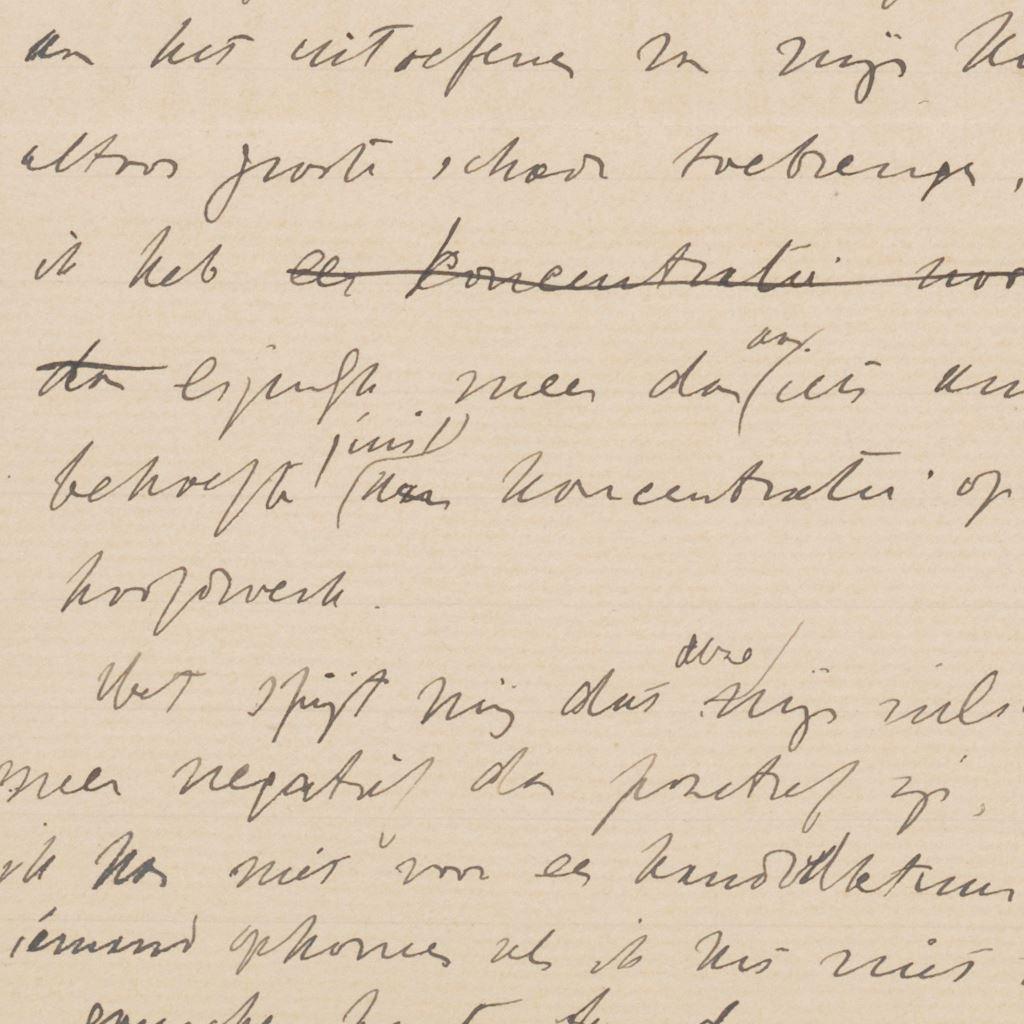 aan het uitoefenen van mijn
altoos groote schade toebrengen,
ik heb een koncentratie voor
dan eigenlijk meer dan aan iets an
behoefte juist aan koncentratie op
hoofdwerk.
Het spijt mij dat deze mijn
meer negatief dan positief zijn,
ik kan niet voor een kandidatuur
iemand opkomen als ik het niet